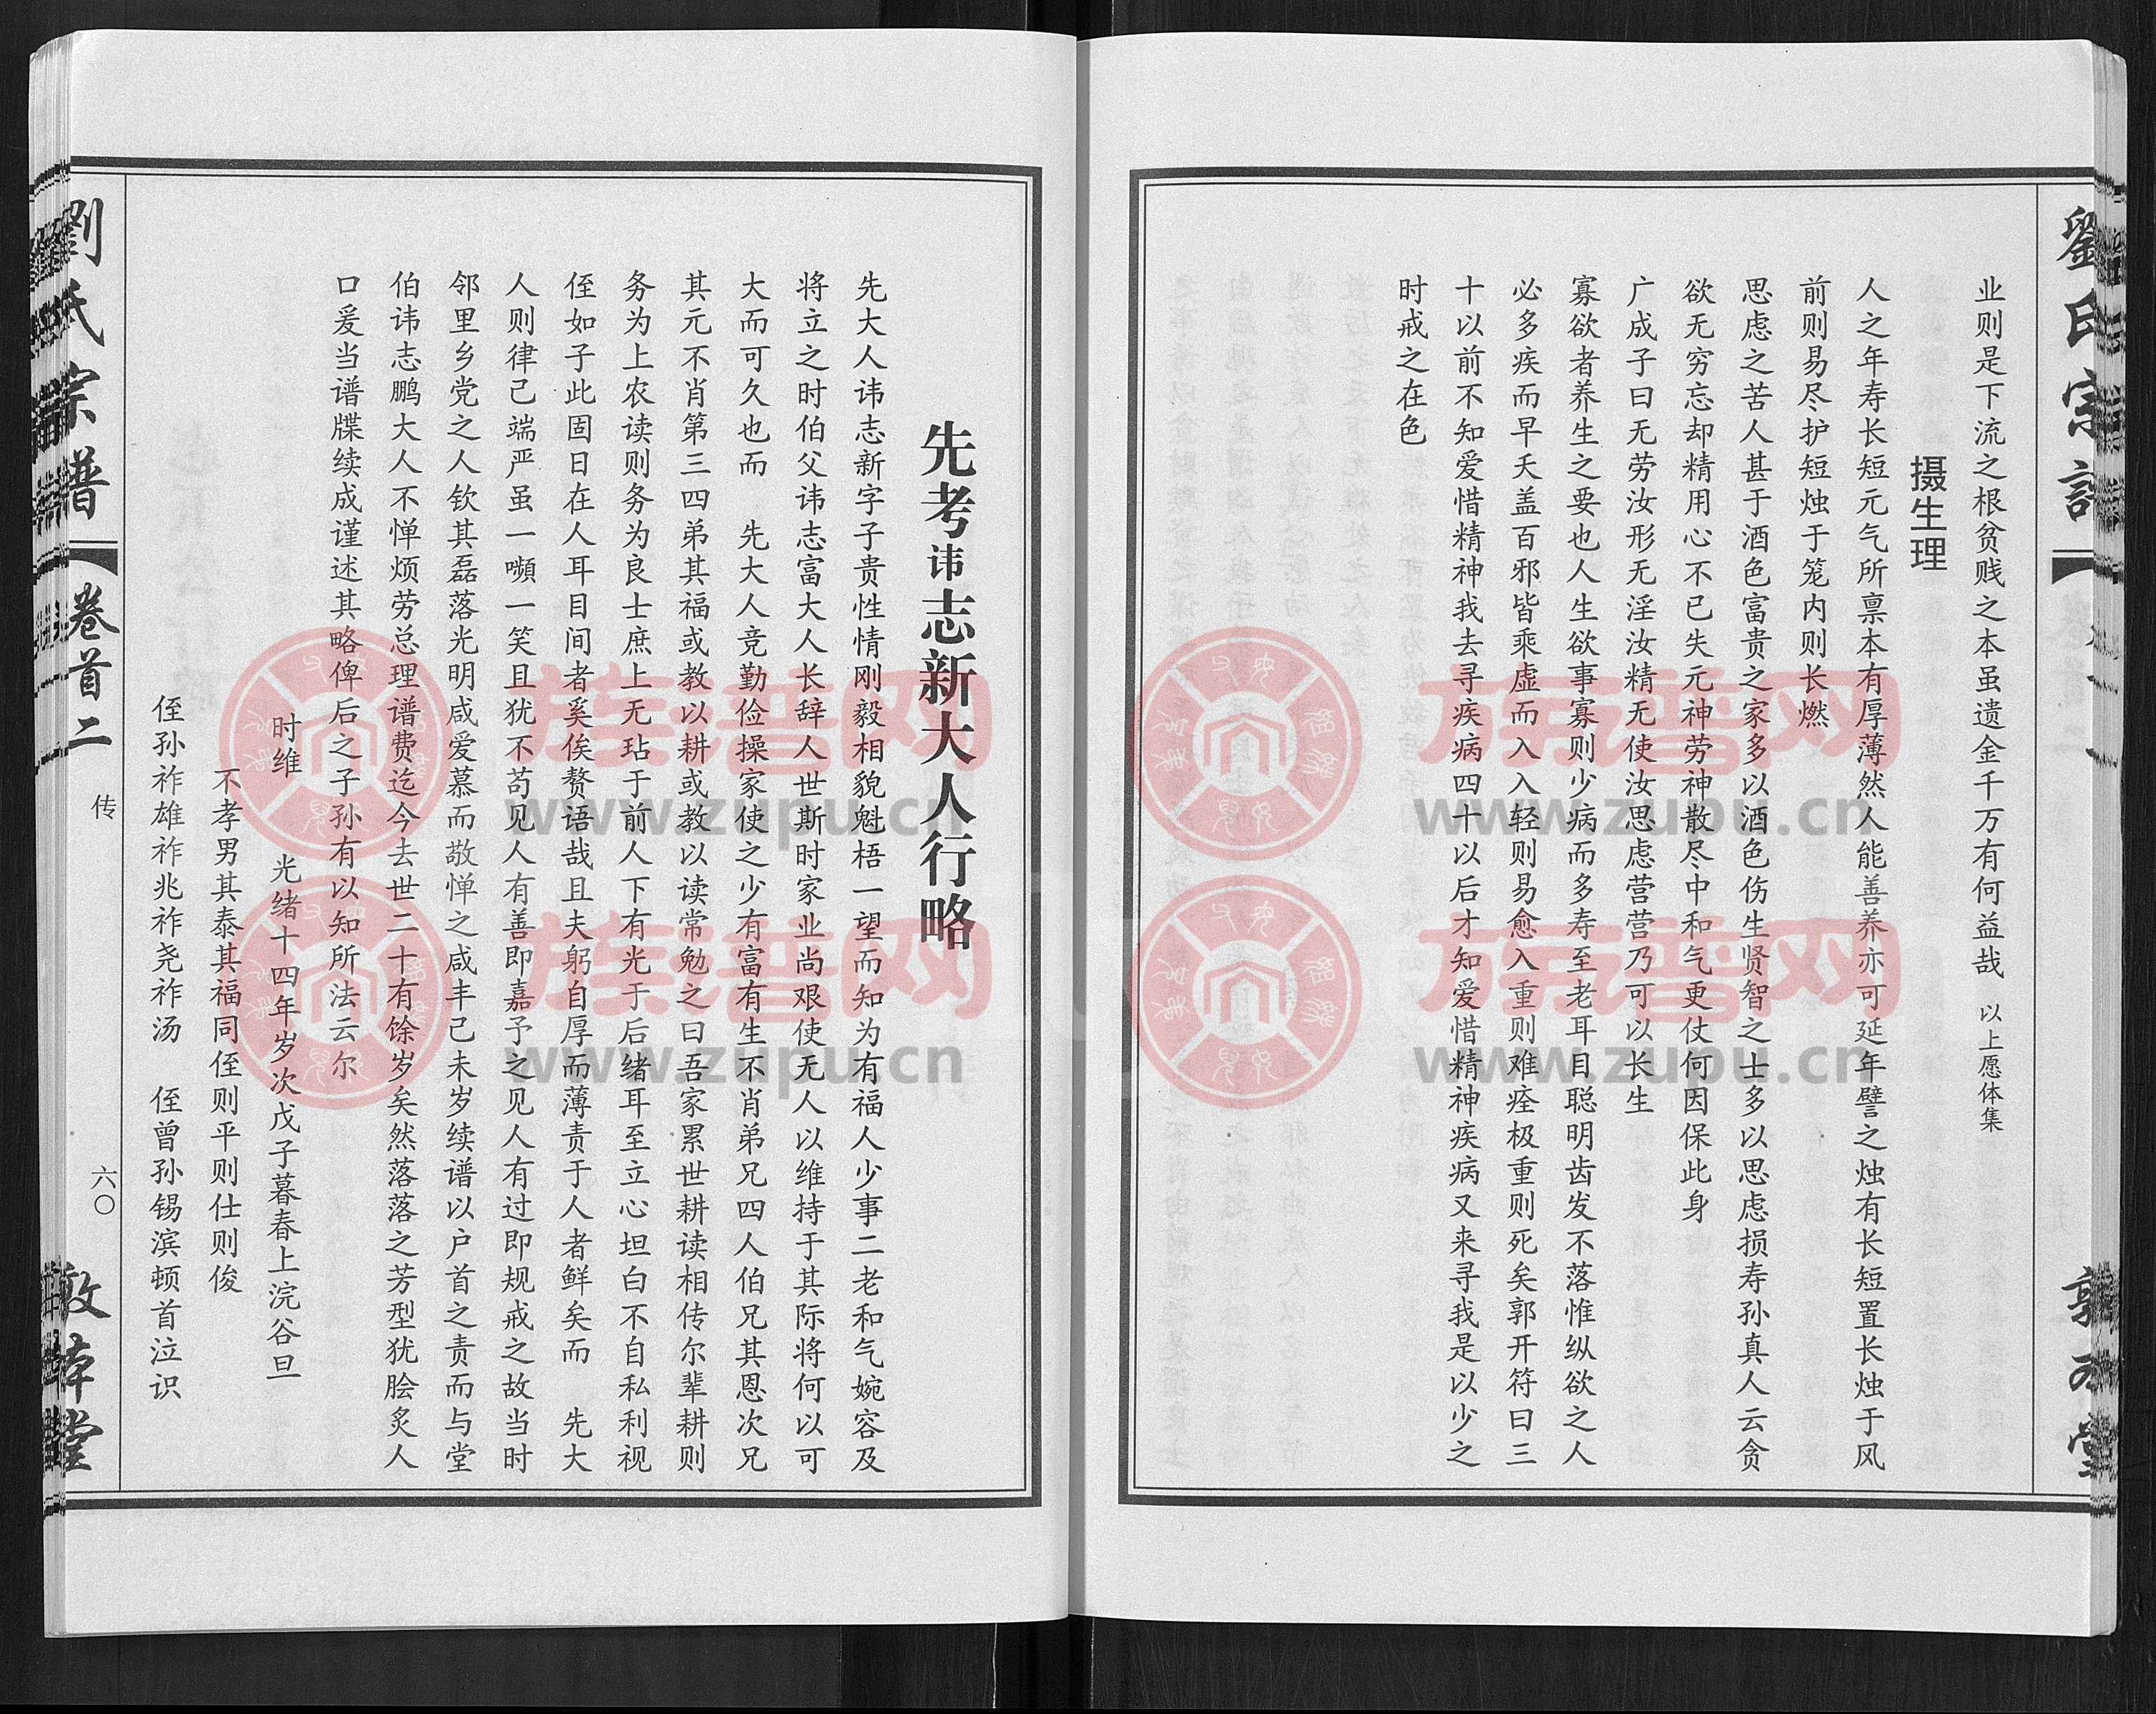 劉氏宗
业则是下流之根贫贱之本虽遗金千万有何益哉 以上愿体集
摄生理
人之年寿长短元气所禀本有厚薄然人能善养亦可延年譬之烛有长短置长烛于风
前则易尽护短烛于笼内则长燃
思虑之苦人甚于酒色富贵之家多以酒色伤生贤智之士多以思虑损寿孙真人云贪
欲无穷忘却精用心不已失元神劳神散尽中和气更仗何因保此身
广成子曰无劳汝形无淫汝精无使汝思虑营营乃可以长生
寡欲者养生之要也人生欲事寡则少病而多寿至老耳目聪明齿发不落惟纵欲之人
必多疾而早夭盖百邪皆乘虚而入入轻则易愈入重则难痊极重则死矣郭开符曰三
十以前不知爱惜精神我去寻疾病四十以后才知爱惜精神疾病又来寻我是以少之
时戒之在色
先考讳志新大人行略
先大人讳志新字子贵性情刚毅相貌魁梧一望而知为有福人少事二老和气婉容及
将立之时伯父讳志富大人长辞人世斯时家业尚艰使无人以维持于其际将何以可
大而可久也而 先大人竞勤俭操家使之少有富有生不肖弟兄四人伯兄其恩次兄
其元不肖第三四弟其福或教以耕或教以读常勉之曰吾家累世耕读相传尔辈耕则
务为上农读则务为良士庶上无玷于前人下有光于后绪耳至立心坦白不自私利视
侄如子此固日在人耳目间者奚俟赘语哉且夫躬自厚而薄责于人者鲜矣而 先大
人则律己端严虽一嚬一笑且犹不苟见人有善即嘉予之见人有过即规戒之故当时
邻里乡党之人钦其磊落光明咸爱慕而敬惮之咸丰己未岁续谱以户首之责而与堂
伯讳志鹏大人不惮烦劳总理谱费迄今去世二十有馀岁矣然落落之芳型犹脍炙人
口爰当谱牒续成谨述其略俾后之子孙有以知所法云尔
时维 光绪十四年岁次戊子暮春上浣谷旦
不孝男其泰其福同侄则平则仕则俊
侄孙祚雄祚兆祚尧祚汤 侄曾孙锡滨顿首泣识
劉氏宗谱 卷首二 传 六〇 敦本堂
族谱网
www.zupu.cn
族谱网
www.zupu.cn
族谱网
www.zupu.cn
族谱网
www.zupu.cn